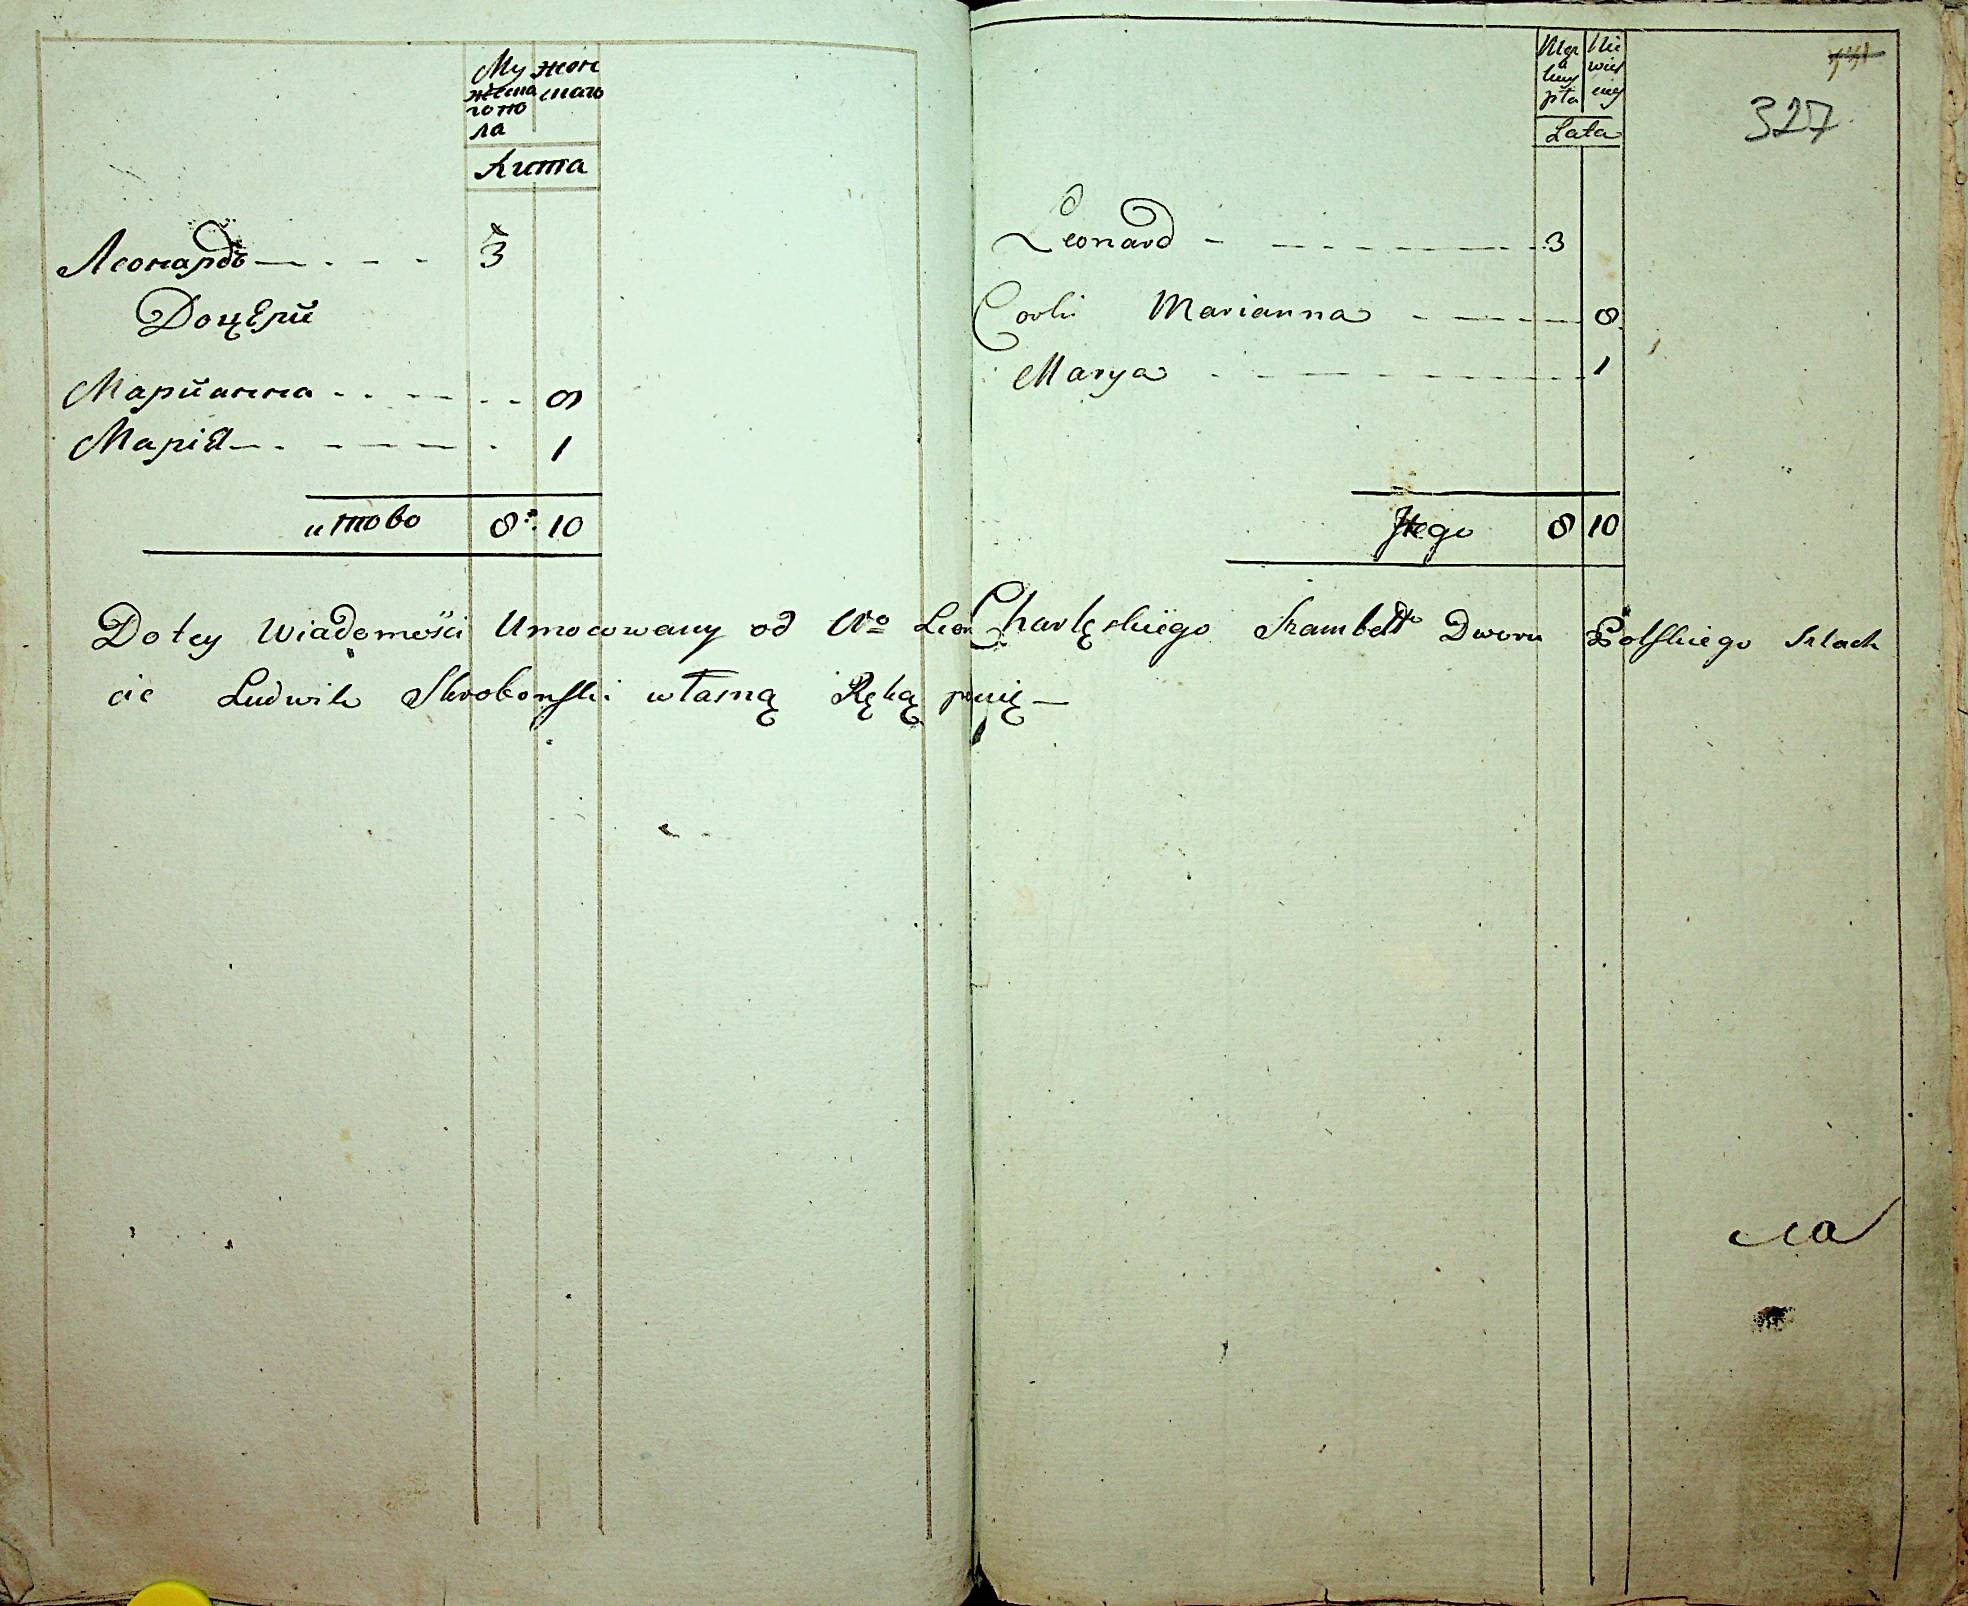 Му
жеска
го по
ла
женс
каго
Лита
Леонардъ — . - - 3
Доцери
Марианна - - - - - 8
Марія - - - - - 1
итово 8 10
Męz
lmy
płci
Nie
wies
ciey
Lata
327
Leonard - - - - - - 3
Corki Marianna - - - - 8
Marya - - - - - - 1
Itego 8 10
Do tey Wiadomości Umocowany od Wo Leon Charlęskiego Szambelle Dworu Polskiego Szlach
cic Ludwik Skrobonski własną Ręką pmię —
на